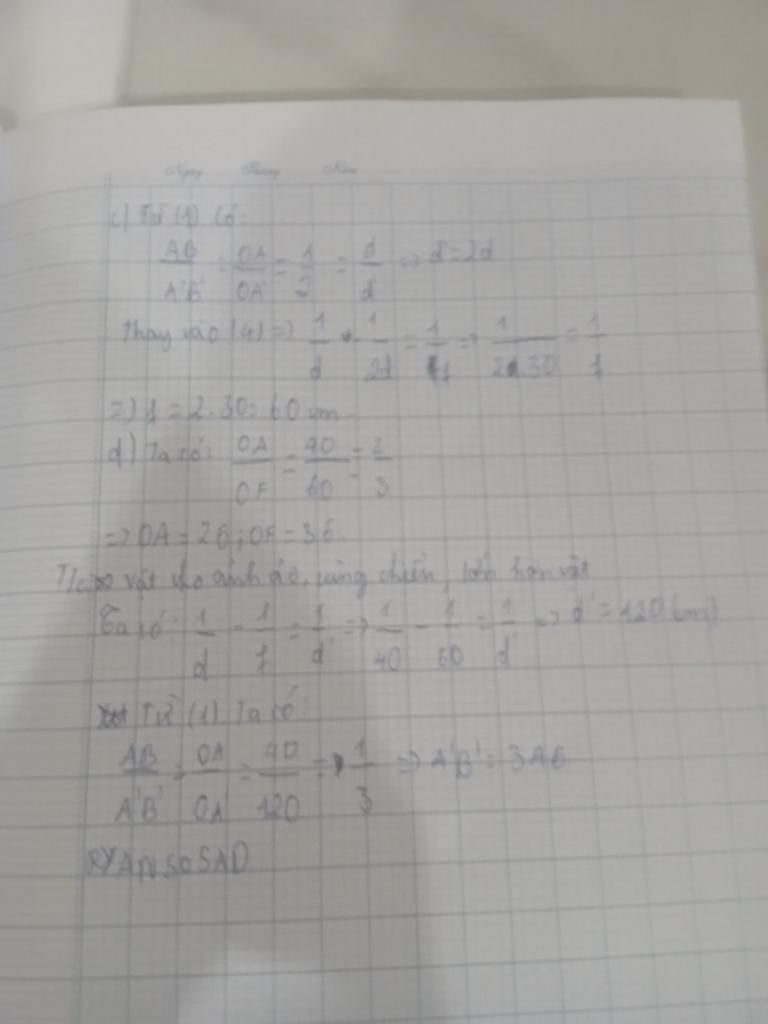 Ngày Tháng Năm
c) Từ (1) có:
AB/A'B' = OA/OA' = 1/2 = d/d' => d' = 2d
Thay vào (4) => 1/d - 1/2d = 1/f => 1/2.30 = 1/f
=> f = 2.30 = 60 cm
d) Ta có: OA/OF = 40/60 = 2/3
=> OA = 26; OF = 36
vật cho ảnh ảo, cùng chiều, lớn hơn vật
Ta có: 1/d - 1/f = 1/d' => 1/40 - 1/60 = 1/d' => d' = 120 (cm)
Từ (1) Ta có:
AB/A'B' = OA/OA' = 40/120 = 1/3 => A'B' = 3AB
RYAN SO SAD